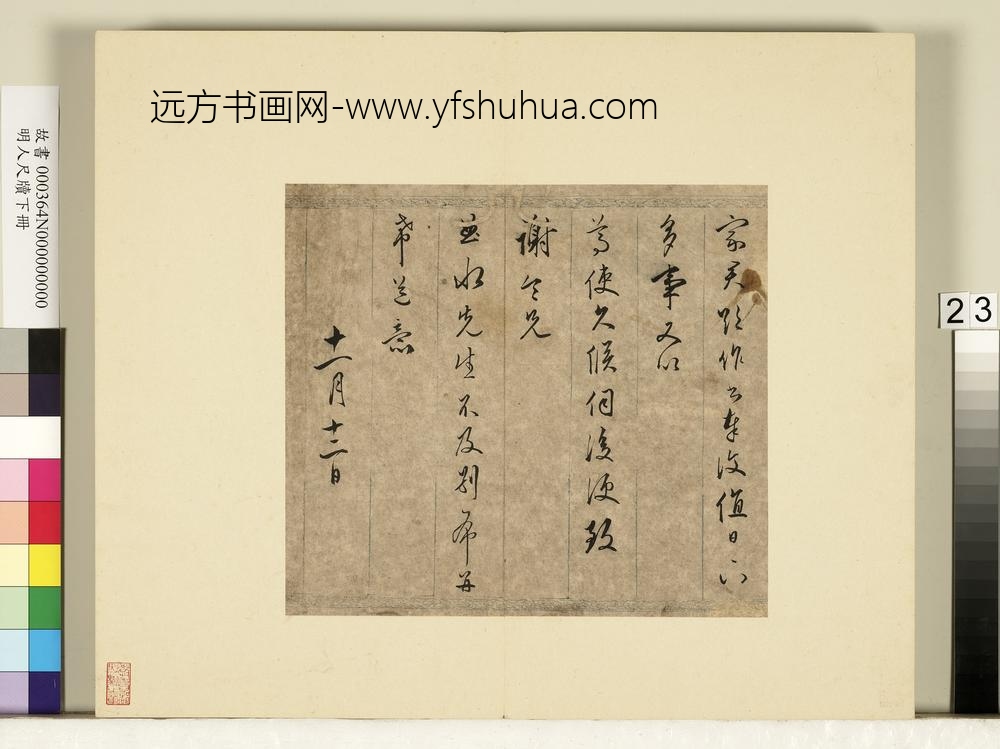 远方书画网-www.yfshuhua.com
故書 000364N000000000
明人尺牘下冊
23
家君 作 書 值日下
多事又以
為使久候 後便致
謝令兄
並水先生不及別 再
希道意
十一月十二日